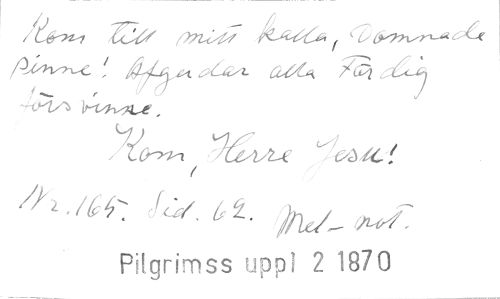 Kom till mitt kalla, Domnade
sinne! Afgudar alla För dig
försvinne.
Kom, Herre Jesu!
Nr. 165. Sid. 62. Mel-not.
Pilgrimss uppl 2 1870